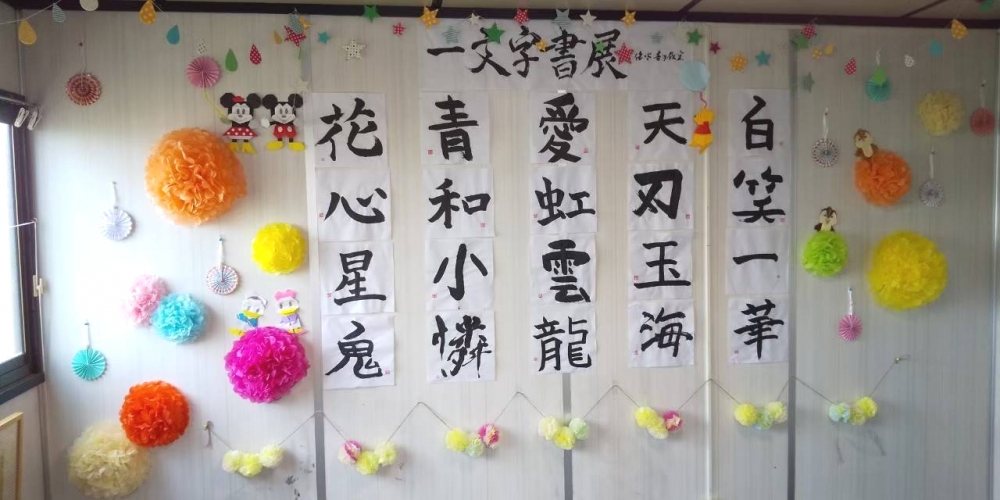 一文字書展
白笑一華
天刃玉海
愛虹雲龍
青和小憐
花心星鬼